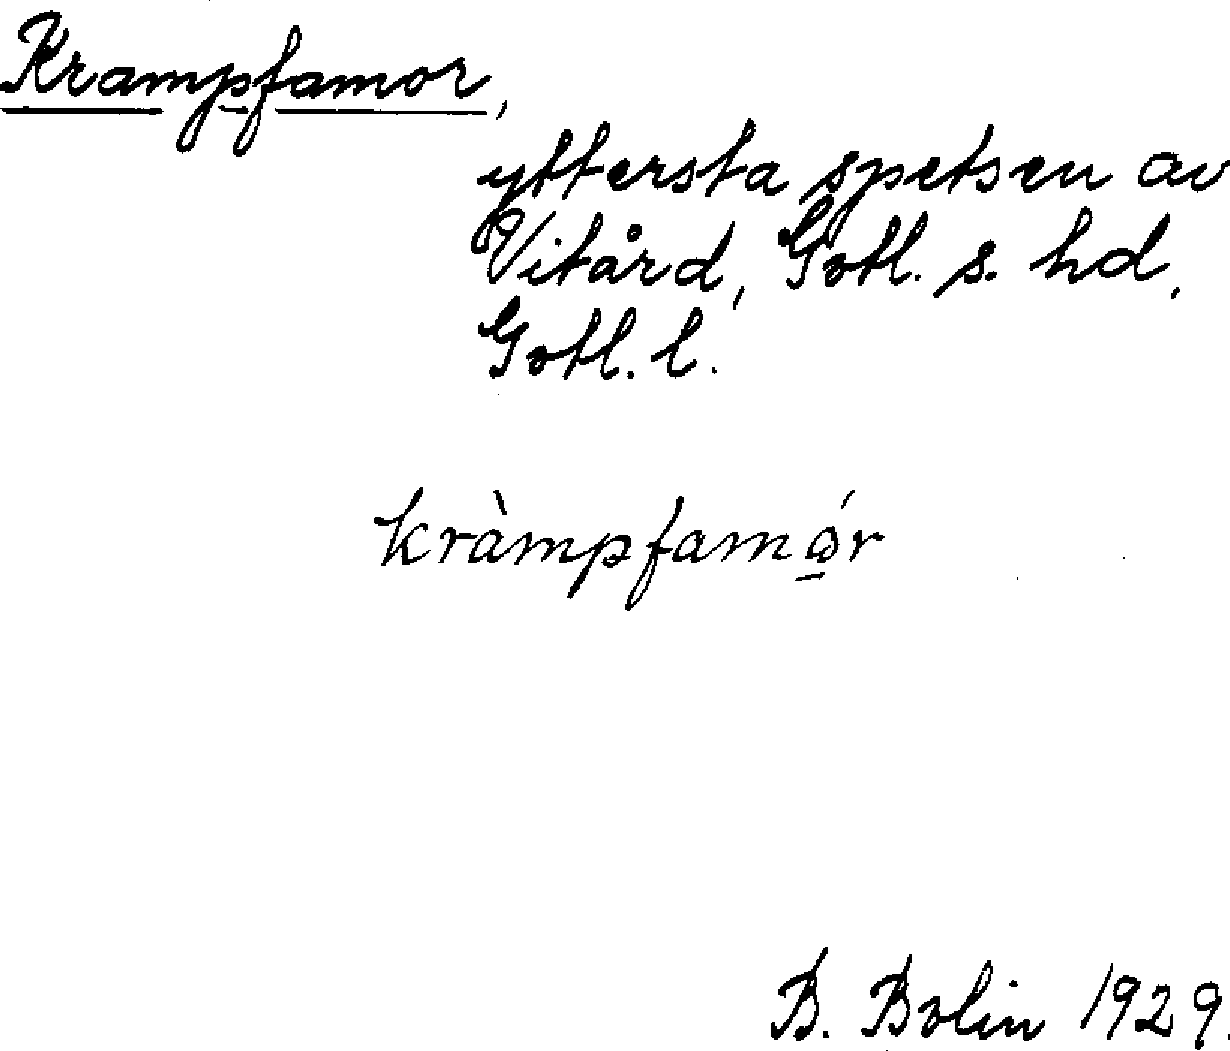 Krampfamor,
yttersta spetsen av
Vitård, Gotl. s. hd,
Gotl. l.
kràmpfamó̲r
B. Bolin 1929.